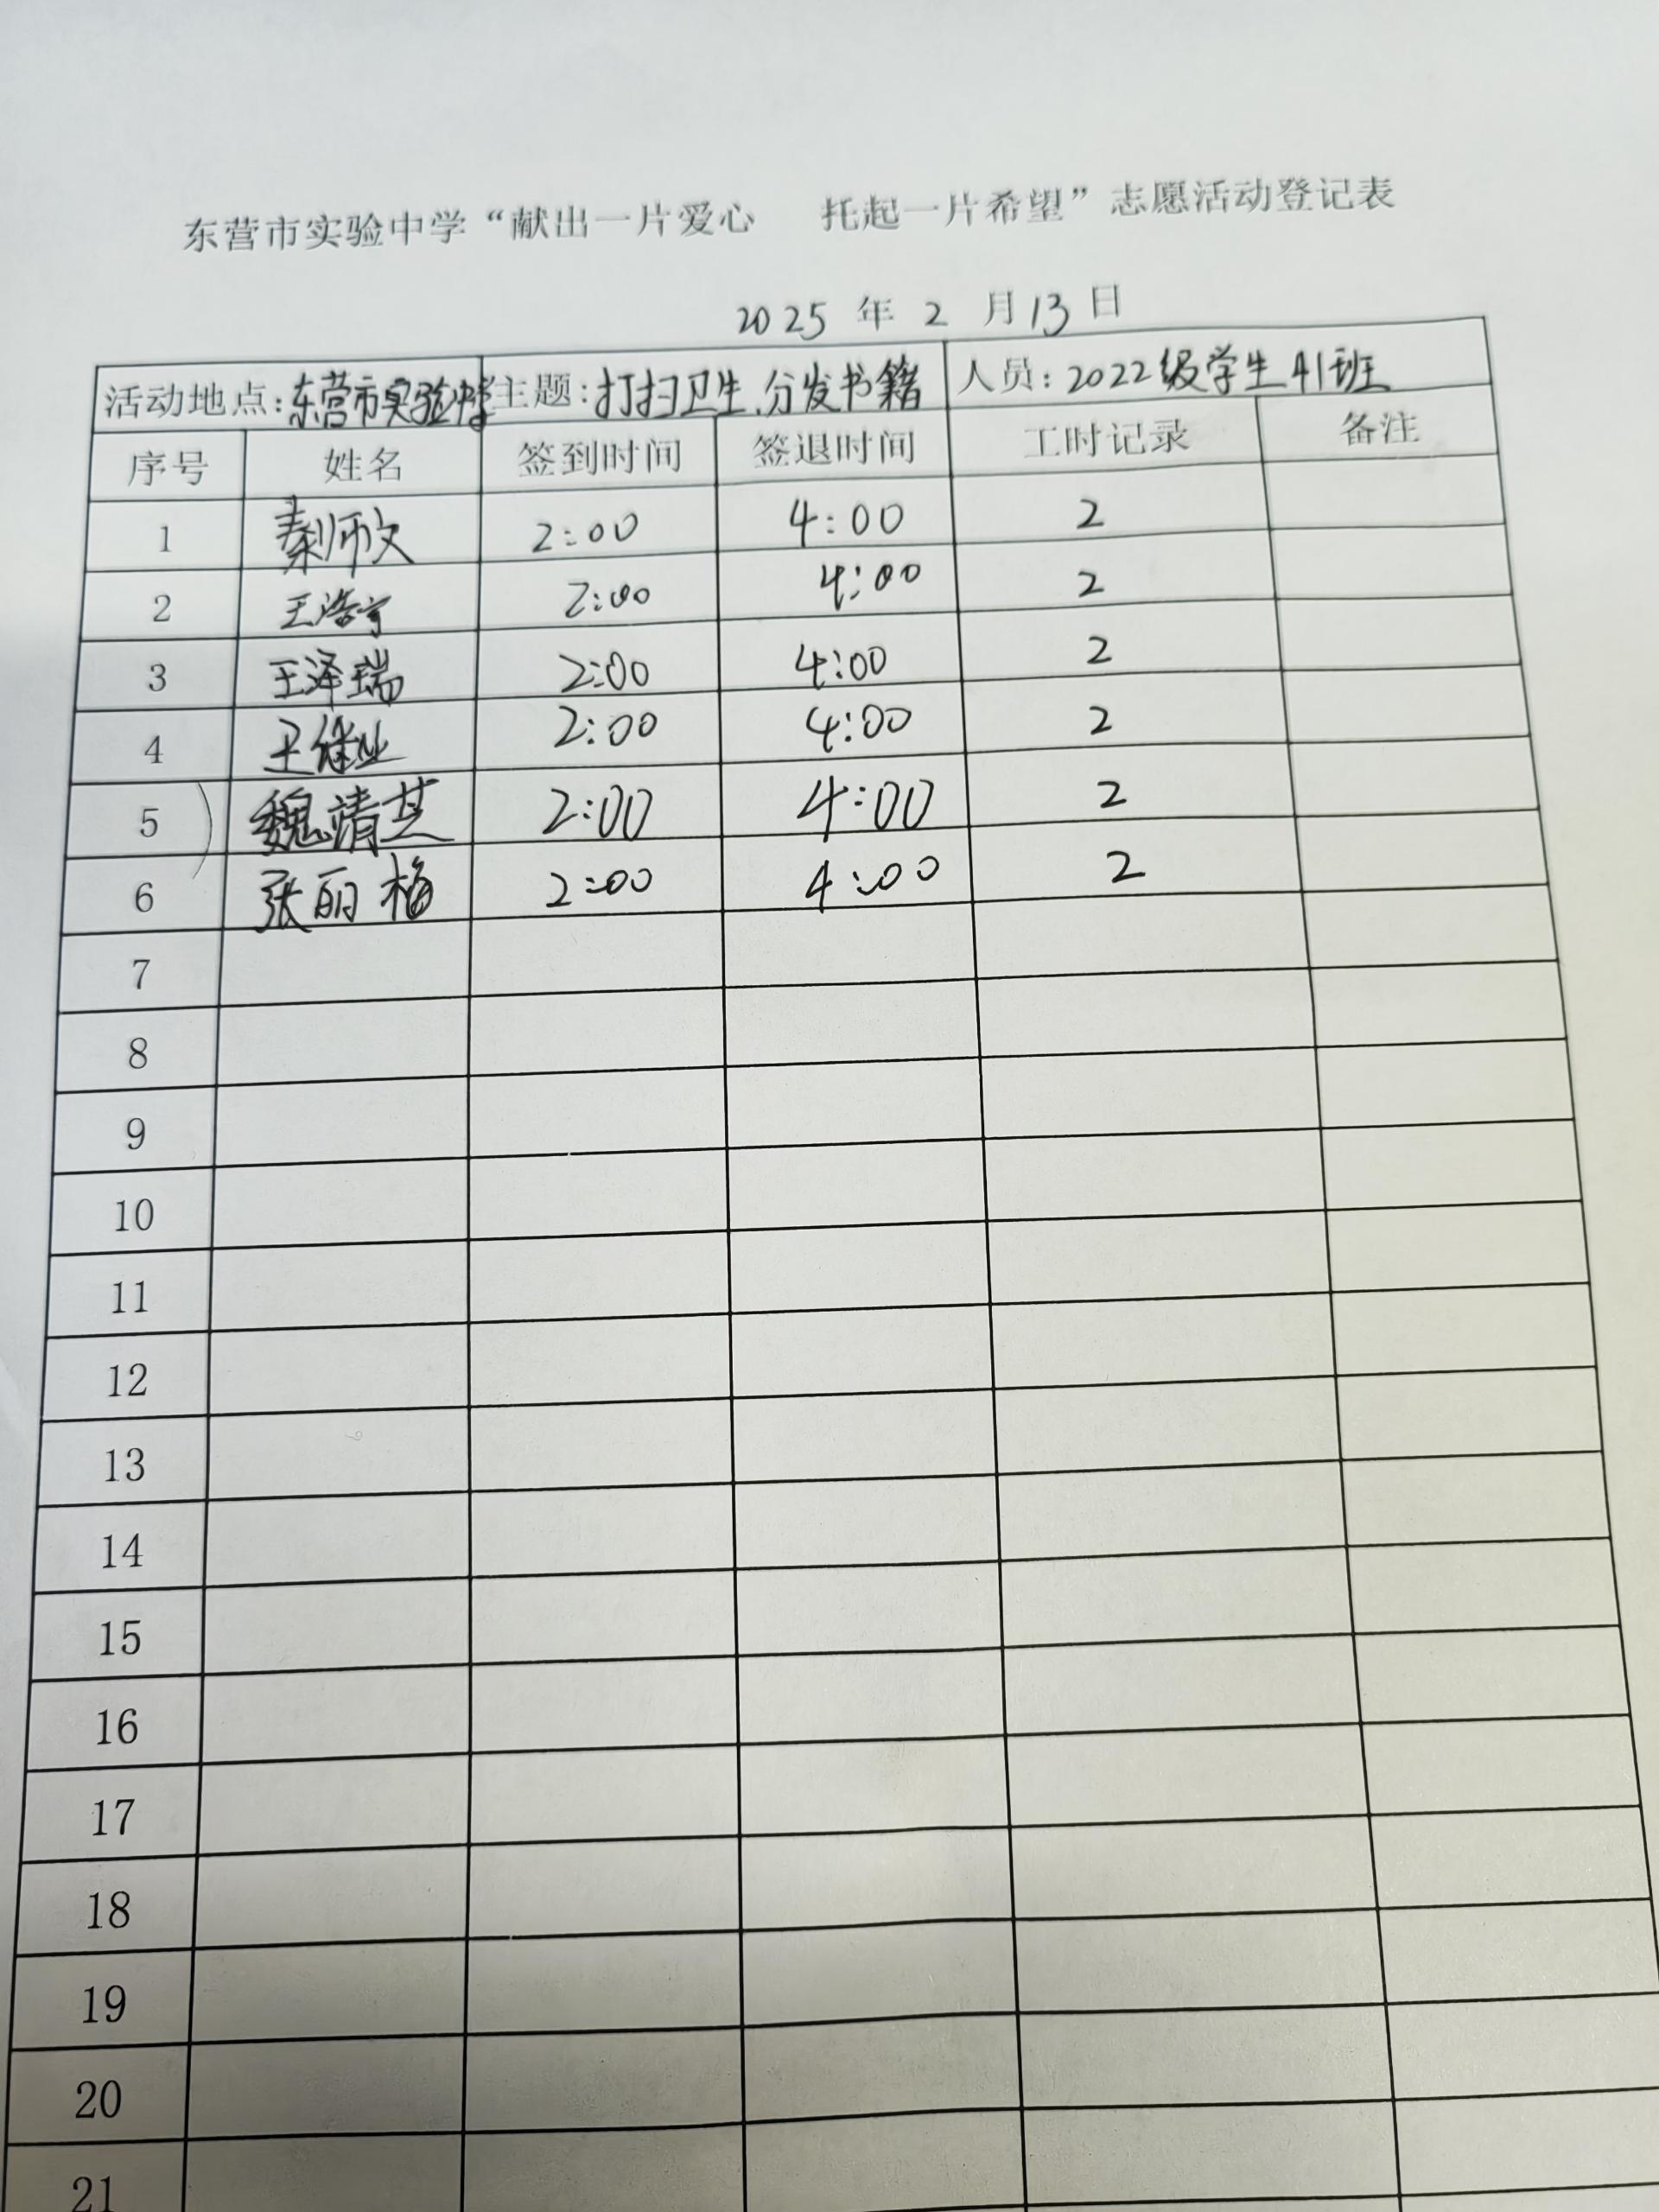 东营市实验中学“献出一片爱心 托起一片希望”志愿活动登记表
2025 年 2 月 13 日
活动地点:东营市实验中学 主题:打扫卫生、分发书籍 人员:2022级学生41班
序号 姓名 签到时间 签退时间 工时记录 备注
1 秦师文 2:00 4:00 2
2 王浩宇 2:00 4:00 2
3 王泽瑞 2:00 4:00 2
4 王继业 2:00 4:00 2
5 魏靖其 2:00 4:00 2
6 张丽梅 2:00 4:00 2
7
8
9
10
11
12
13
14
15
16
17
18
19
20
21